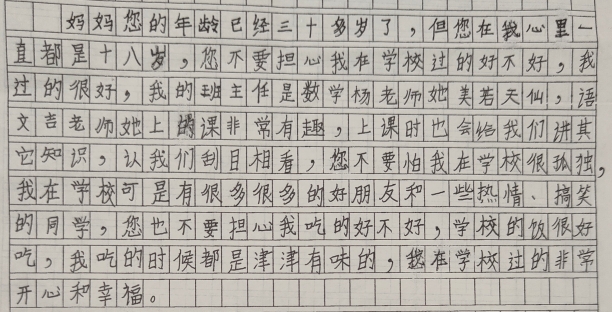 妈妈您的年龄已经三十多岁了，但您在我心里一
直都是十八岁，您不要担心我在学校过的好不好，我
过的很好，我的班主任是数学杨老师她美若天仙，语
文吉老师她上的课非常有趣，上课时也会给我们讲其
它知识，认我们刮目相看，您不要怕我在学校很孤独，
我在学校可是有很多很多的好朋友和一些热情、搞笑
的同学，您也不要担心我吃的好不好，学校的饭很好
吃，我吃的时候都是津津有味的，我在学校过的非常
开心和幸福。